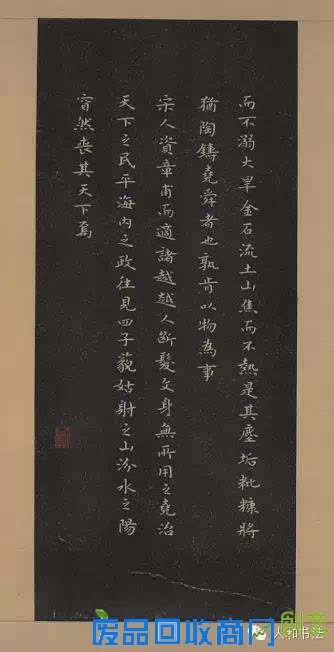 而不溺大旱金石流土山焦而不熱是其塵垢粃糠將
猶陶鑄堯舜者也孰肯以物為事
宋人資章甫而適諸越越人斷髮文身無所用之堯治
天下之民平海內之政往見四子藐姑射之山汾水之陽
窅然喪其天下焉
人和书法
废品回收商网